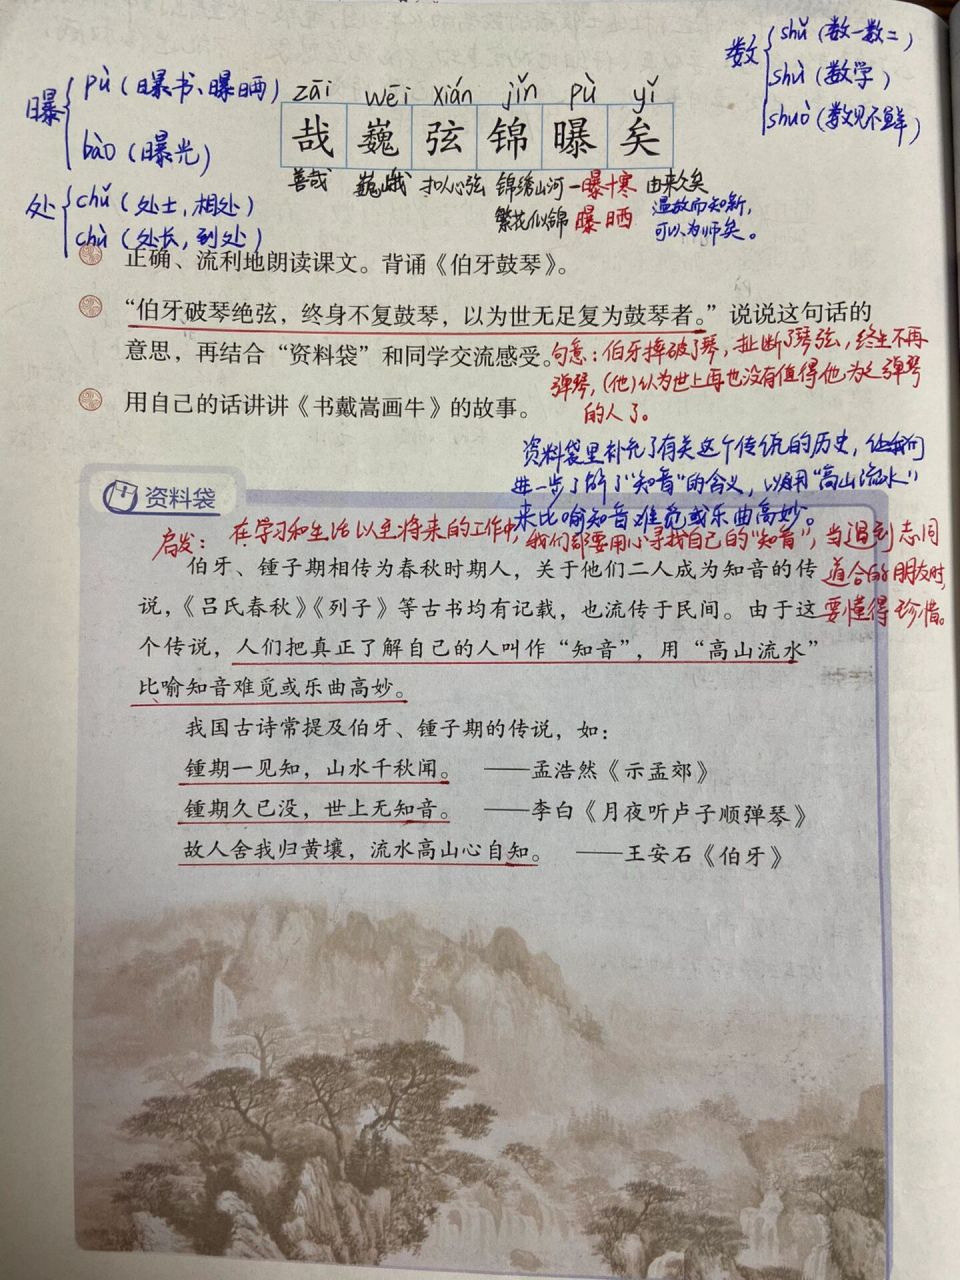 数 shǔ（数一数二）
shù（数学）
shuò（数见不鲜）
曝 pù（曝书、曝晒）
bào（曝光）
处 chǔ（处士，相处）
chù（处长，到处）
zāi wēi xián jǐn pù yǐ
哉 巍 弦 锦 曝 矣
善哉 巍峨 扣人心弦 锦绣山河 一曝十寒 由来久矣
繁花似锦 曝晒 温故而知新，
可以为师矣。
正确、流利地朗读课文。背诵《伯牙鼓琴》。
“伯牙破琴绝弦，终身不复鼓琴，以为世无足复为鼓琴者。”说说这句话的
意思，再结合“资料袋”和同学交流感受。
句意：伯牙摔破了琴，扯断了琴弦，终生不再
弹琴，（他）认为世上再也没有值得他为之弹琴
的人了。
用自己的话讲讲《书戴嵩画牛》的故事。
资料袋里补充了有关这个传说的历史，让我们
进一步了解了“知音”的含义，以及用“高山流水”
来比喻知音难觅或乐曲高妙。
资料袋
启发：在学习和生活以至将来的工作中，我们都要用心寻找自己的“知音”，当遇到志同
道合的朋友时，
要懂得珍惜。
伯牙、锺子期相传为春秋时期人，关于他们二人成为知音的传
说，《吕氏春秋》《列子》等古书均有记载，也流传于民间。由于这
个传说，人们把真正了解自己的人叫作“知音”，用“高山流水”
比喻知音难觅或乐曲高妙。
我国古诗常提及伯牙、锺子期的传说，如：
锺期一见知，山水千秋闻。 ——孟浩然《示孟郊》
锺期久已没，世上无知音。 ——李白《月夜听卢子顺弹琴》
故人舍我归黄壤，流水高山心自知。 ——王安石《伯牙》